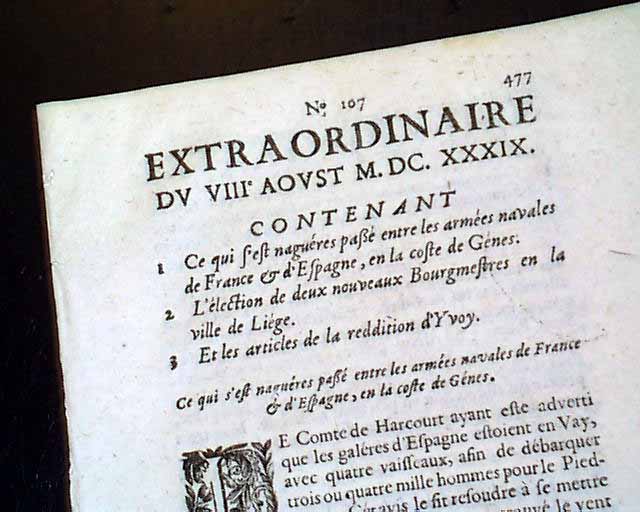 477
No 107
EXTRAORDINAIRE
DV VIIIe AOVST M. DC. XXXIX.
CONTENANT
1 Ce qui s'est naguéres passé entre les armées navales
de France & d'Espagne, en la coste de Génes.
2 L'élection de deux nouveaux Bourgmestres en la
ville de Liége.
3 Et les articles de la reddition d'Yvoy.
Ce qui s'est naguéres passé entre les armées navales de France
& d'Espagne, en la coste de Génes.
LE Comte de Harcourt ayant esté adverti
que les galéres d'Espagne estoient en Vay,
avec quatre vaisseaux, afin de débarquer
trois ou quatre mille hommes pour le Pied-
Cét avis le fit resoudre à se mettre
trouvé le vent